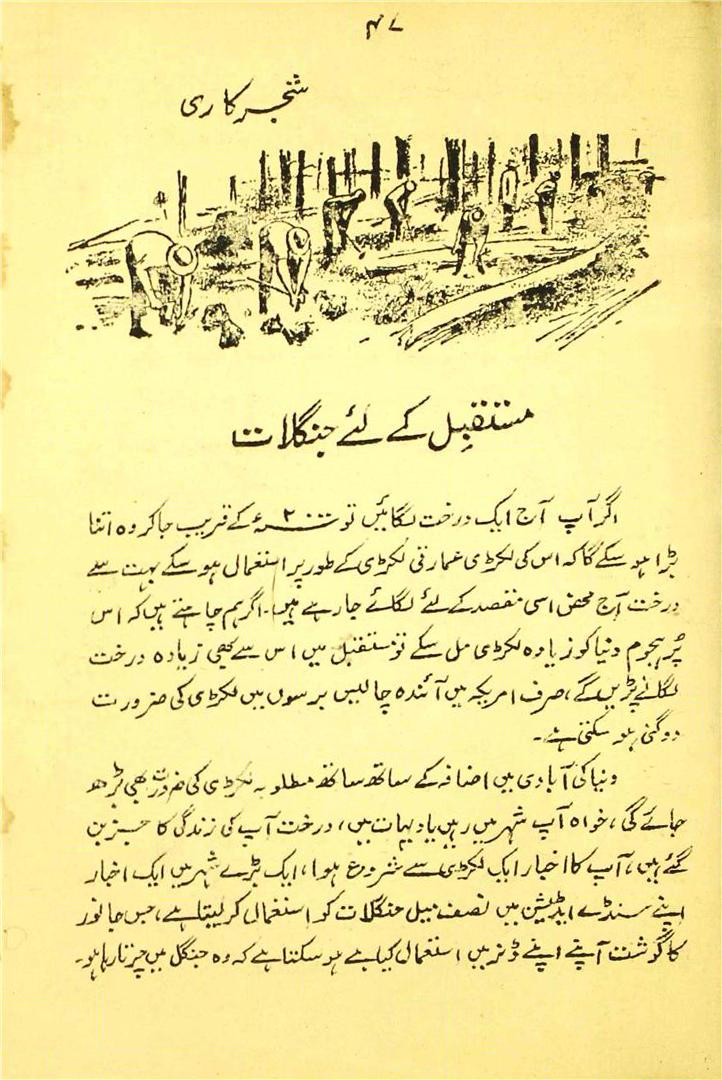 ۴۷
شجر کاری
مستقبل کے لئے جنگلات
اگر آپ آج ایک درخت لگائیں تو ۲۰۰۰ء کے قریب جا کر وہ اتنا
بڑا ہو سکے گا کہ اس کی لکڑی عمارتی لکڑی کے طور پر استعمال ہو سکے بہت سے
درخت آج محض اسی مقصد کے لئے لگائے جا رہے ہیں۔ اگر ہم چاہتے ہیں کہ اس
پُر ہجوم دنیا کو زیادہ لکڑی مل سکے تو مستقبل میں اس سے بھی زیادہ درخت
لگانے پڑیں گے، صرف امریکہ میں آئندہ چالیس برسوں میں لکڑی کی ضرورت
دوگنی ہو سکتی ہے۔
دنیا کی آبادی میں اضافہ کے ساتھ ساتھ مطلوبہ لکڑی کی ضرورت بھی بڑھ
جائے گی، خواہ آپ شہر میں رہیں یا دیہات میں، درخت آپ کی زندگی کا جزبن
گئے ہیں، آپ کا اخبار ایک لکڑی سے شروع ہوا، ایک بڑے شہر میں ایک اخبار
اپنے سنڈے ایڈیشن میں نصف میل جنگلات کو استعمال کر لیتا ہے، جس جانور
کا گوشت آپنے اپنے ڈنر میں استعمال کیا ہے ہو سکتا ہے کہ وہ جنگل میں چرتا رہا ہو۔